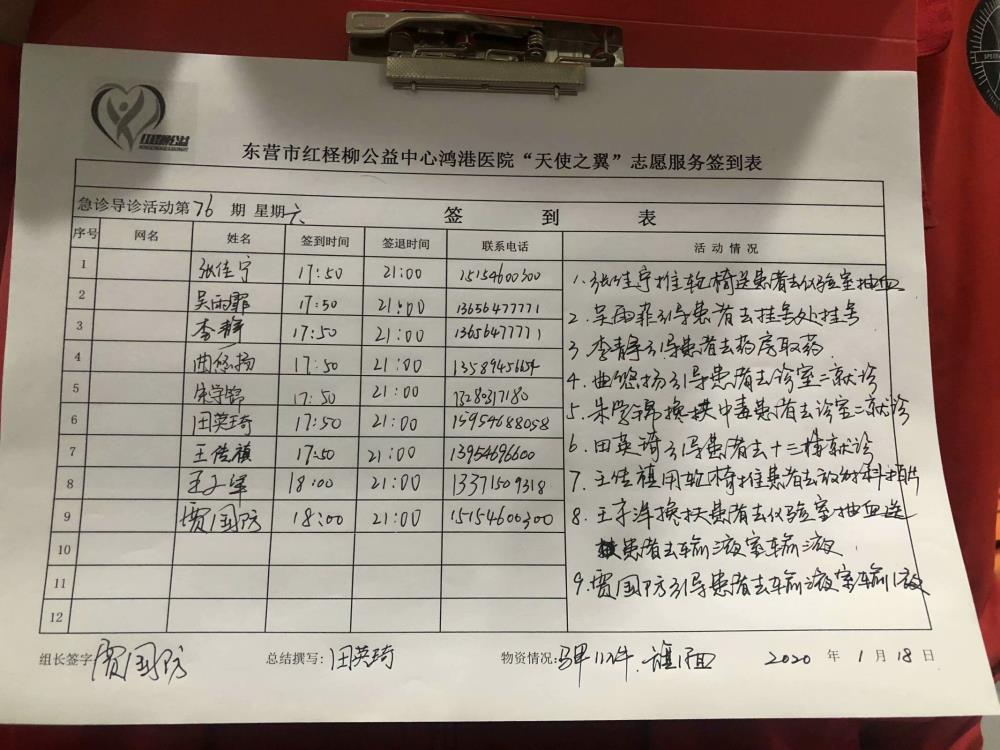 红柽柳公益
东营市红柽柳公益中心鸿港医院“天使之翼”志愿服务签到表
急诊导诊活动第76期 星期六 签到表
序号 网名 姓名 签到时间 签退时间 联系电话 活动情况
1 张佳宁 17:50 21:00 15154600300
2 吴雨霏 17:50 21:00 13656477771
3 李静 17:50 21:00 13656477771
4 曲悠扬 17:50 21:00 13589456154
5 朱学锦 17:50 21:00 13280317180
6 田英琦 17:50 21:00 15954688058
7 王佳禛 17:50 21:00 13954696600
8 王子 18:00 21:00 13371509318
9 贾国防 18:00 21:00 15154600300
10
11
12
1. 张佳宁推轮椅送患者去化验室抽血
2. 吴雨霏引导患者去挂号处挂号
3 李静引导患者去药房取药
4. 曲悠扬引导患者去诊室二就诊
5. 朱学锦搀扶中毒患者去诊室二就诊
6. 田英琦引导患者去十三楼就诊
7. 王佳禛用轮椅推患者去放射科拍片
8. 王子 搀扶患者去化验室抽血送
患者去输液室输液
9. 贾国防引导患者去输液室输液
组长签字: 贾国防 总结撰写: 田英琦 物资情况: 马甲 件. 旗1面 2020 年 1 月 18 日